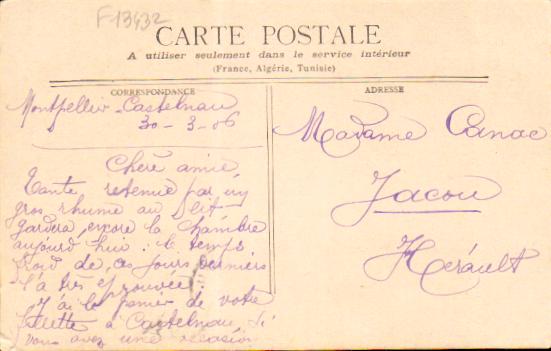 F13432
CARTE POSTALE
A utiliser seulement dans le service intérieur
(France, Algérie, Tunisie)
CORRESPONDANCE
Montpellier-Castelnau
30-3-06
Chère amie,
Tante, retenue par un
gros rhume au lit
gardera encore la chambre
aujourd'hui : le temps
froid de, ces jours derniers
l'a très éprouvée.
J'ai le panier de votre
fillette à Castelnau, si
vous avez une occasion
ADRESSE
Madame Canac
Jacou
Hérault